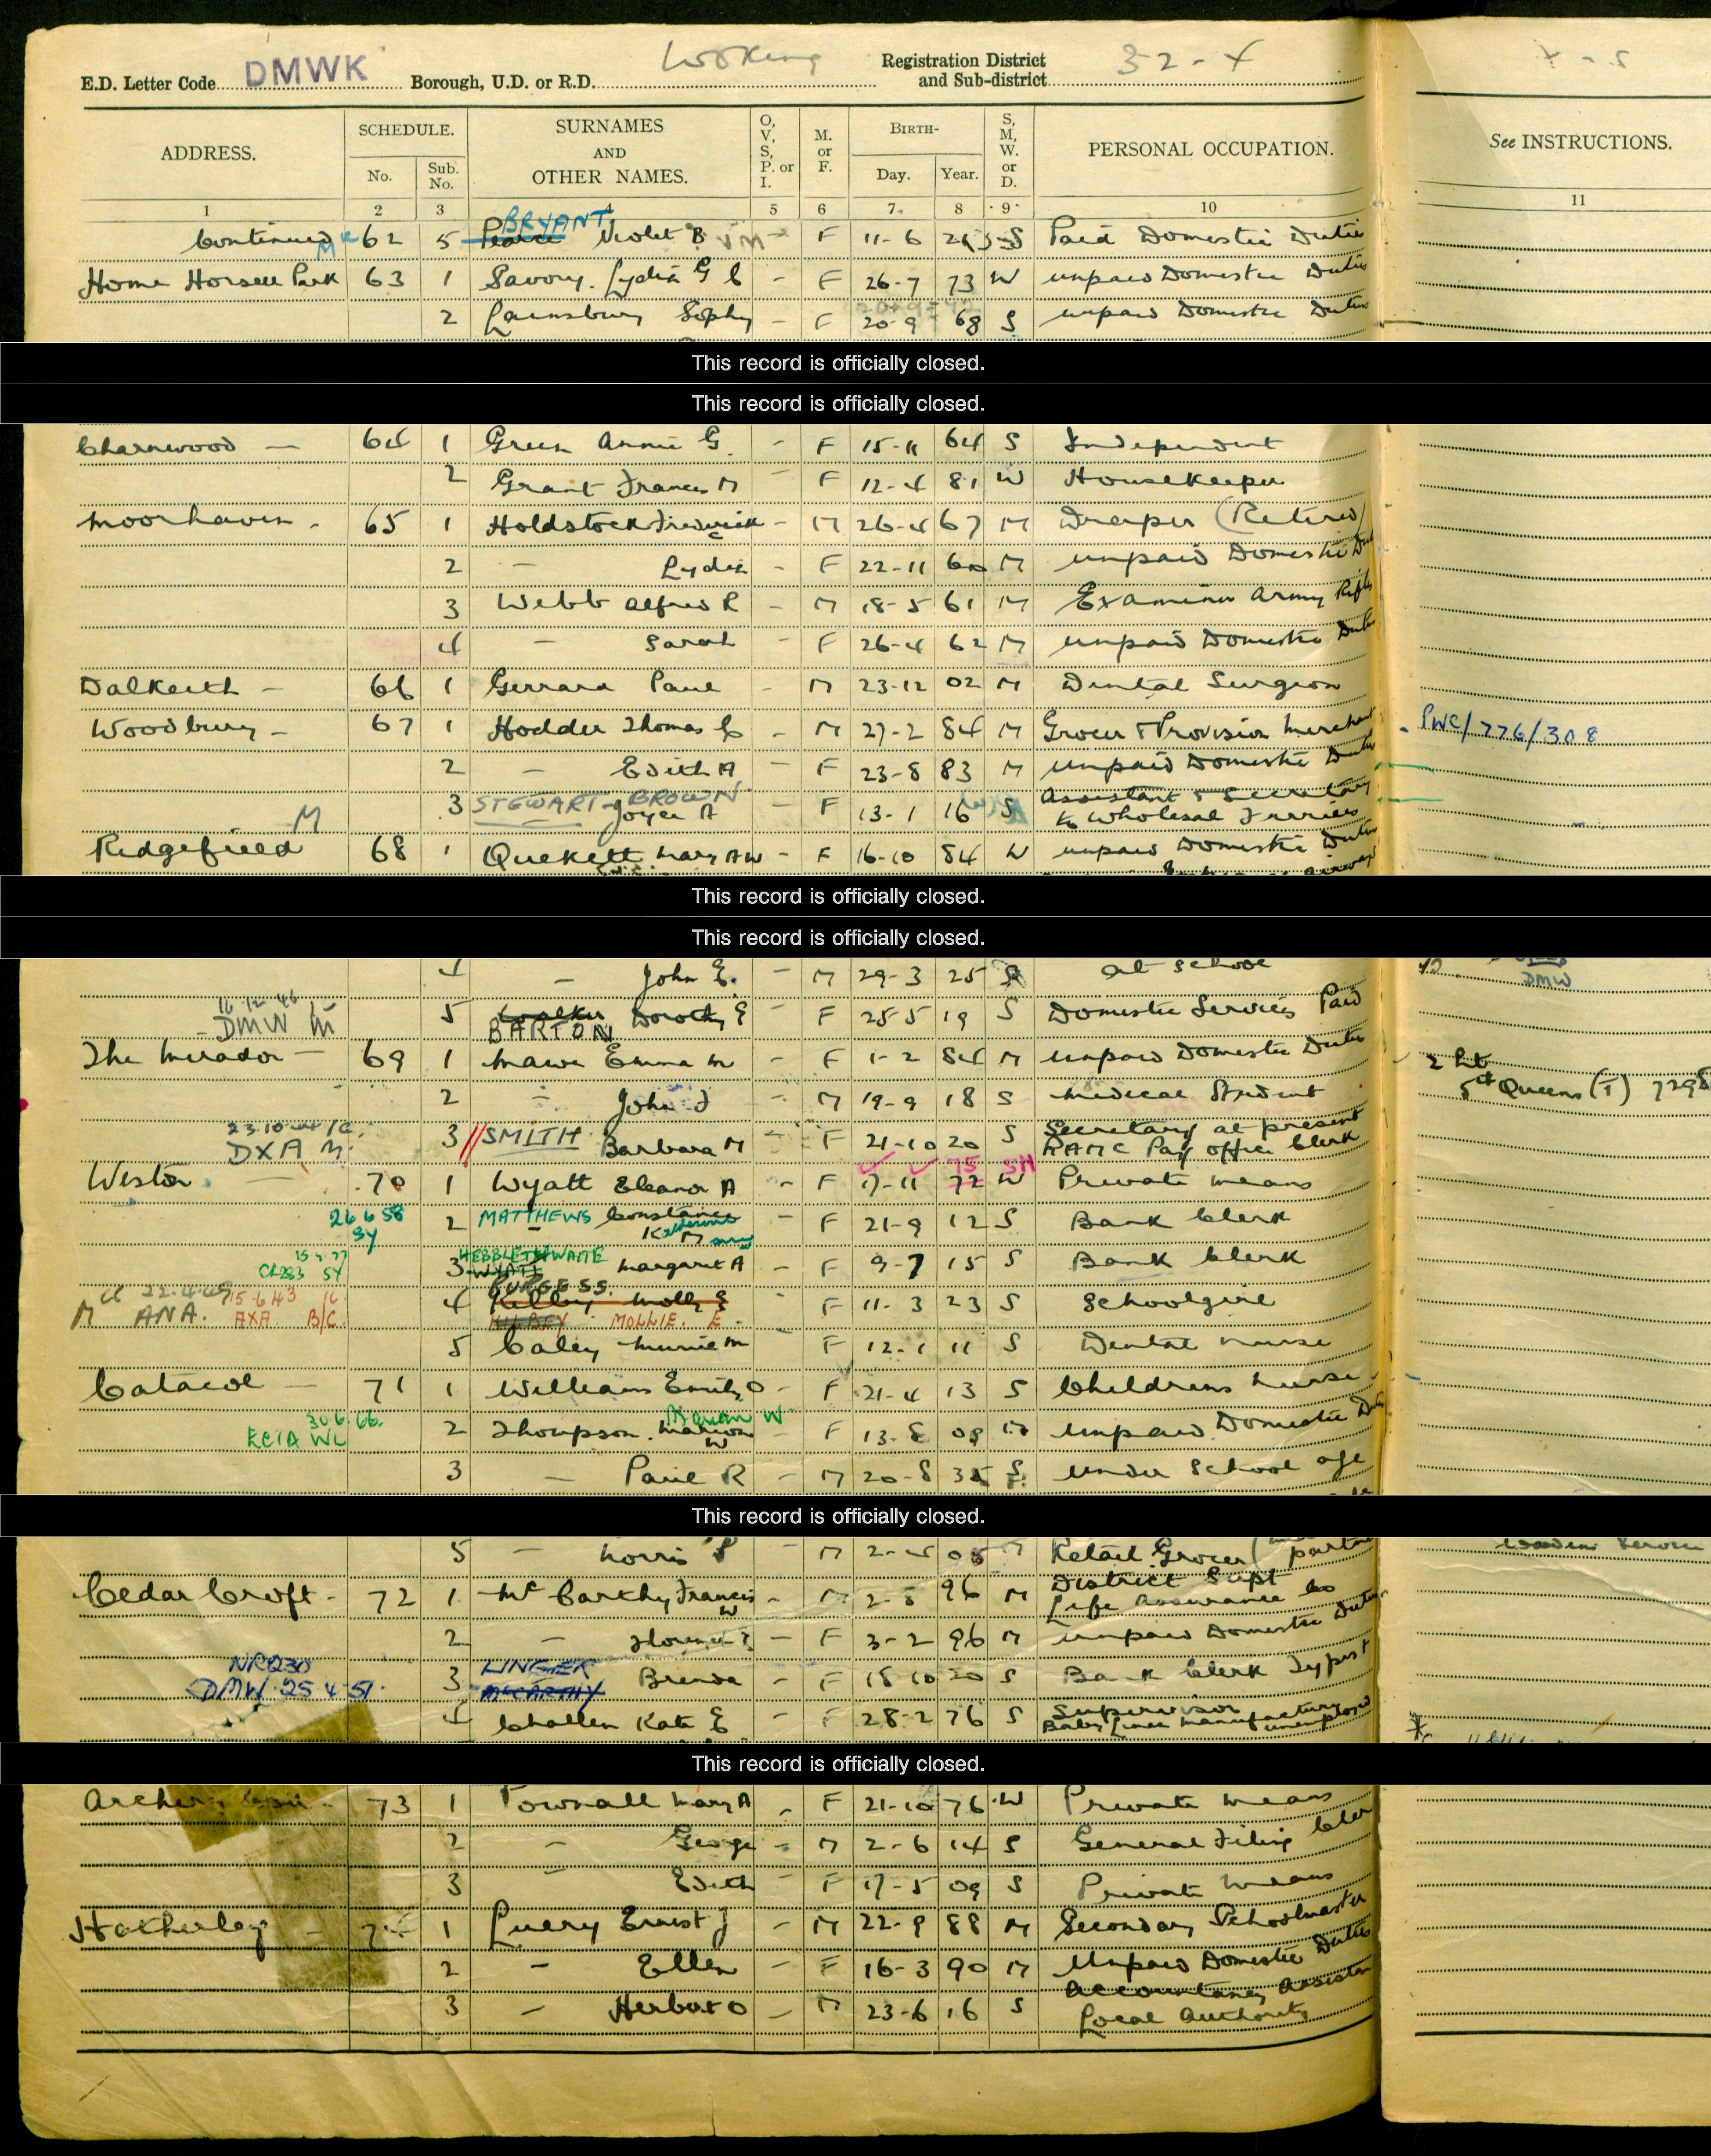 E.D. Letter Code DMWK Borough, U.D. or R.D. Woking Registration District and Sub-district 32-4
ADDRESS. SCHEDULE. No. Sub. No. SURNAMES AND OTHER NAMES. O, V, S, P. or I. M. or F. BIRTH- Day. Year. S, M, W. or D. PERSONAL OCCUPATION. See INSTRUCTIONS.
1 2 3 4 5 6 7 8 9 10 11
BRYANT
Continued 62 5 Pearce Violet B F 11-6 S Paid Domestic Duties
Home Horsell Park 63 1 Savory. Lydia G C - F 26-7 73 W unpaid Domestic Duties
2 Lainsbury Sophy - F 20-9 68 S unpaid Domestic Duties
This record is officially closed.
This record is officially closed.
Charnwood — 64 1 Green Annie G. - F 15-11 64 S Independent
2 Grant Frances M - F 12-4 81 W Housekeeper
Moorhaven - 65 1 Holdstock Frederick - M 26-4 67 M Draper (Retired)
2 - Lydia - F 22-11 60 M unpaid Domestic Dut
3 Webb Alfred R - M 18-5 61 M Examiner Army Rifles
4 - Sarah - F 26-4 62 M unpaid Domestic Duties
Dalkeith - 66 1 Gerrard Paul - M 23-12 02 M Dental Surgeon
Woodbury - 67 1 Hodder Thomas C - M 27-2 84 M Grocer & Provision Merchant PWC/776/308
2 - Edith A - F 23-8 83 M unpaid Domestic Duties
3 STEWART-BROWN Joyce A - F 13-1 16 S Assistant & Secretary to Wholesal Furriers
M
Ridgefield 68 1 Quekett Mary A W - F 16-10 84 W unpaid Domestic Duties
This record is officially closed.
This record is officially closed.
4 - John E. - M 29-3 25 S at School
DMW
16 12 46
DMW M 5 Dorothy E - F 25 5 19 S Domestic Services Paid
BARTON
The Mirador — 69 1 Mawe Emma M - F 1-2 84 M unpaid Domestic Duties
2 Lt
2 - John J - M 19-9 18 S Medical Student
5th Queens (T) 7295
DXA M. 3 SMITH Barbara M - F 21-10 20 S Secretary at present RAMC Pay office Clerk
75 SM
Weston — 70 1 Wyatt Eleanor A - F 17-11 72 W Private means
26 6 58 SY 2 MATTHEWS Constance Katherine M - F 21-9 12 S Bank Clerk
CR283 SY 3 HEBBLETHWAITE WYATT Margaret A - F 9-7 15 S Bank Clerk
BURGESS.
M ANA. 15 6 43 AXA B/C 4 Kilbey Molly E F 11-3 23 S Schoolgirl
KILBEY MOLLIE. E.
5 Caley Muriel M - F 12-1 11 S Dental Nurse
Catacol — 71 1 Williams Emily O - F 21-4 13 S Childrens Nurse
30 6 66. ECIA WL 2 Thompson. Marion W - F 13-8 09 M Unpaid Domestic Duties
3 — Paul R - M 20-8 S under School age
This record is officially closed.
5 - Norris P - M 2-4 05 M Retail Grocer
Warden Service
Cedar Croft - 72 1 McCarthy Francis W - M 2-8 96 M District Supt Life Assurance Co
2 - Florence - F 3-2 96 M unpaid Domestic Duties
NR230
DMW 25 4 51. 3 LINGER McCARTHY Brenda - F 18 10 20 S Bank Clerk Typist
4 Challen Kate E - F 28-2 76 S Supervisor Baby Linen Manufacturers unemployed
This record is officially closed.
73 1 Townall Mary A - F 21-10 76 W Private means
2 - George - M 2-6 14 S General Filing Cler
3 - Edith - F 17-5 09 S Private means
Hatherley - 74 1 Luery Ernest J - M 22-9 88 M Secondary Schoolmaster
2 - Ellen - F 16-3 90 M Unpaid Domestic Duties
3 - Herbert O - M 23-6 16 S Accountancy Assistan Local Authority